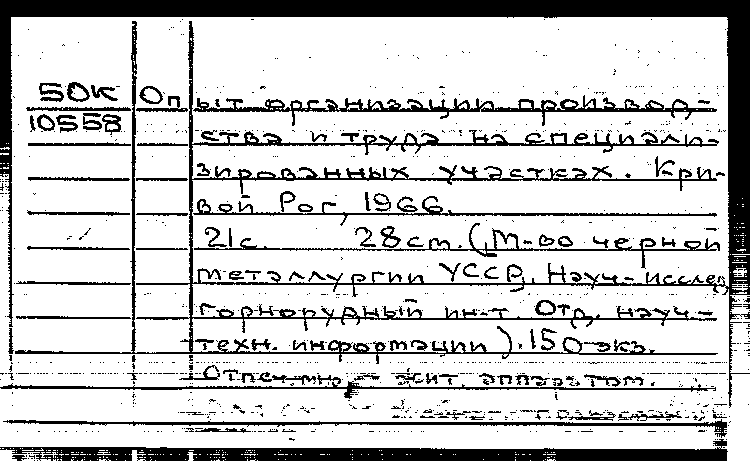 50К Опыт организации производ-
10558 ства и труда на специали-
зированных участках. Кри-
вой Рог, 1966.
21с. 28см. (М-во черной
металлургии УССР. Науч.-исслед.
горнорудный ин-т. Отд. науч.-
техн. информации). 150 экз.
Отпеч. множит. аппаратом.